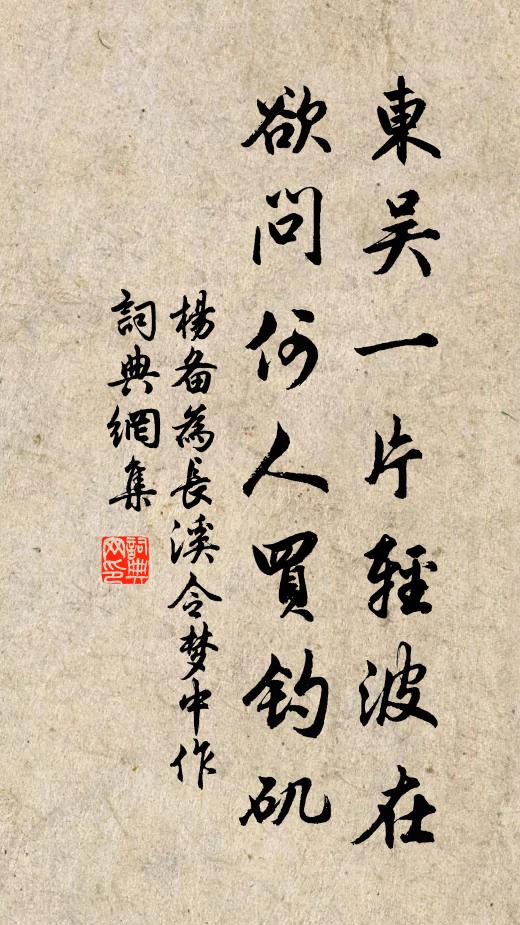 東吴一片輕波在
欲問何人買釣矶
楊畨為長溪令梦中作
詞典網集
詞典网印